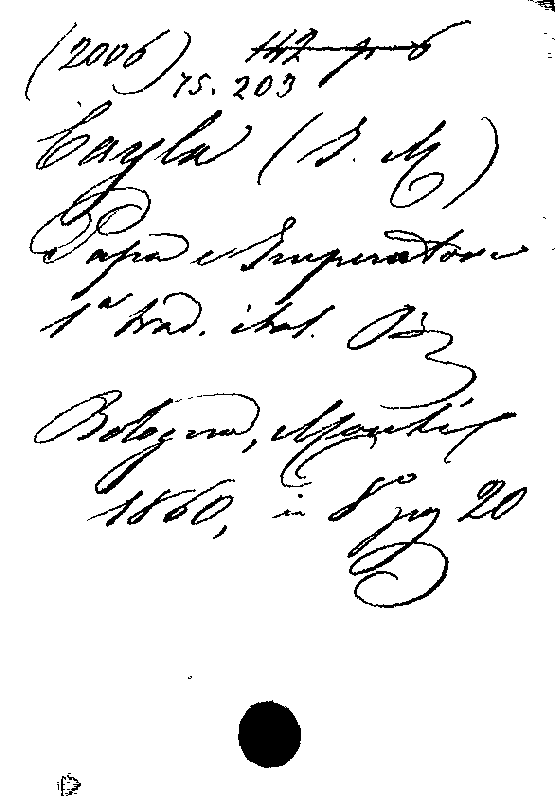 (2006) 142 p 6
75. 203
Cayla (J. M)
Papa e Imperatore
1ª trad. ital.
Bologna, Monti
1860, in 8º pag 20